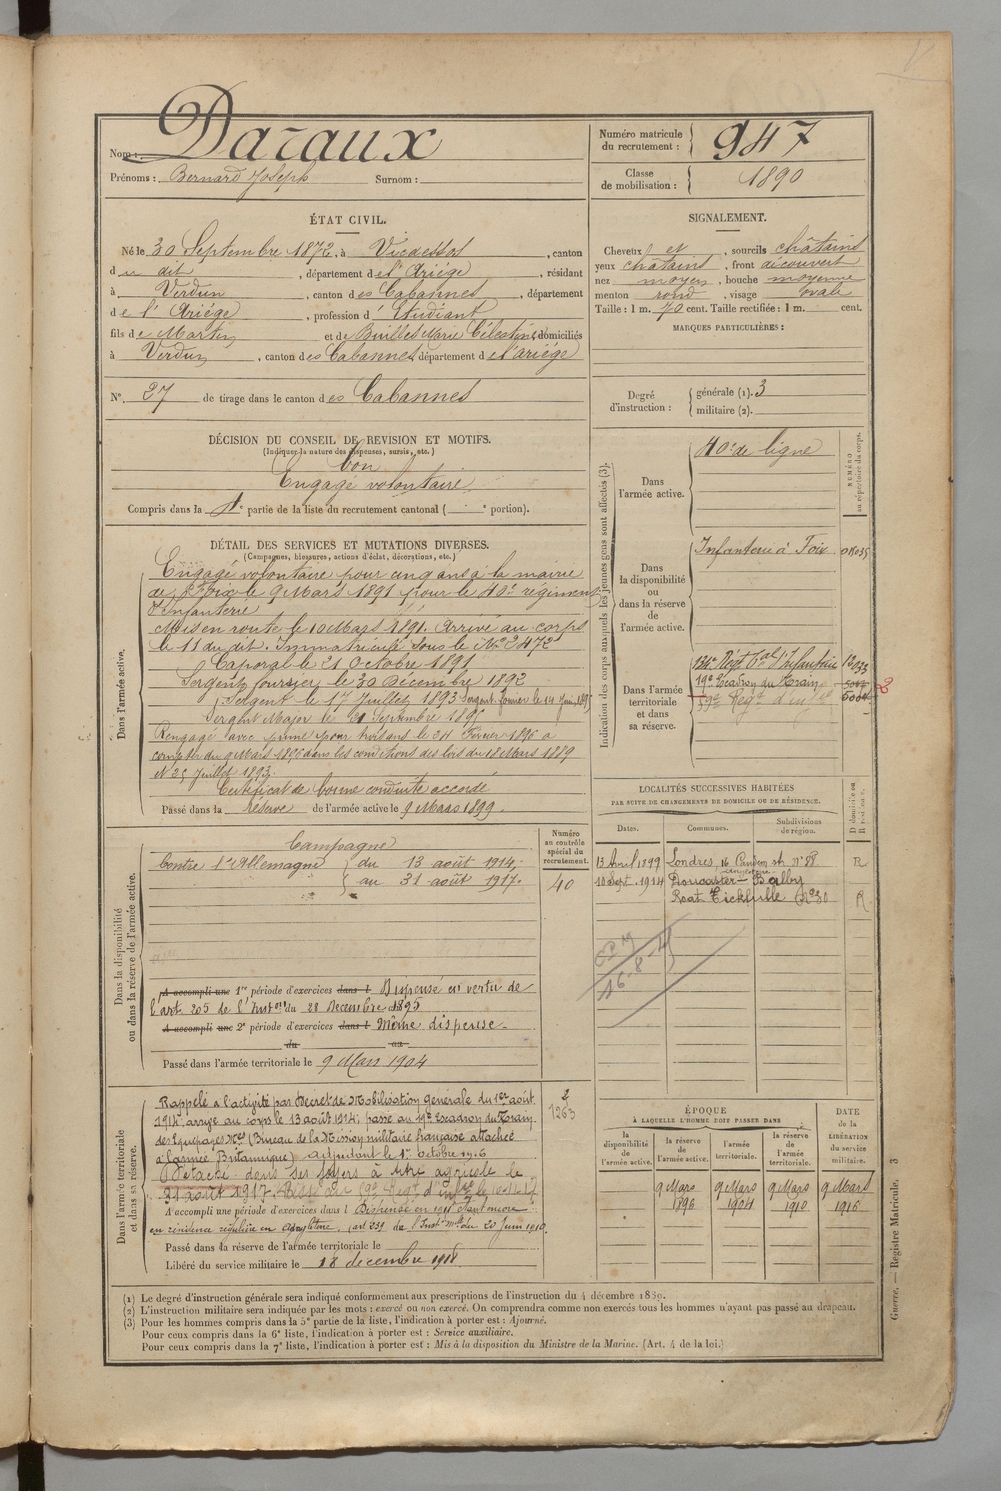 Nom : Daraux
Prénoms : Bernard Joseph Surnom :
Numéro matricule du recrutement : 947
Classe de mobilisation : 1890
ÉTAT CIVIL.
Né le 30 Septembre 1872, à Vicdessos, canton
du dit, département de l'Ariége, résidant
à Verdun, canton des Cabannes, département
de l'Ariége, profession d'Etudiant
fils de Martin et de Buillés Marie Célestine, domiciliés
à Verdun, canton des Cabannes département de l'ariége
N°. 27 de tirage dans le canton des Cabannes
SIGNALEMENT.
Cheveux et, sourcils châtains
yeux châtains, front découvert
nez moyen, bouche moyenne
menton rond, visage ovale
Taille : 1 m. 70 cent. Taille rectifiée : 1 m. cent.
MARQUES PARTICULIÈRES :
Degré d'instruction : générale (1). 3
militaire (2).
DÉCISION DU CONSEIL DE REVISION ET MOTIFS.
(Indiquer la nature des dispenses, sursis, etc.)
bon
Engagé volontaire
Compris dans la 1e partie de la liste du recrutement cantonal ( e portion).
DÉTAIL DES SERVICES ET MUTATIONS DIVERSES.
(Campagnes, blessures, actions d'éclat, décorations, etc.)
Dans l'armée active.
Engagé volontaire pour cinq ans à la mairie
de Foix le 9 Mars 1891 pour le 40e régiment
d'Infanterie
Mis en route le 10 Mars 1891. Arrivé au corps
le 11 du dit. Immatriculé sous le No 2472
Caporal le 21 Octobre 1891
Sergent fourrier le 30 Décembre 1892
Sergent le 17 Juillet 1893 Sergent fourrier le 14 Juin 1895
Sergent Major le 21 Septembre 1895
Rengagé avec prime pour trois ans le 24 Février 1896 a
compter du 9 Mars 1896 dans les conditions des lois du 18 Mars 1889
et 25 Juillet 1893.
Certificat de bonne conduite accordé
Passé dans la réserve de l'armée active le 9 Mars 1899.
Indication des corps auxquels les jeunes gens sont affectés (3).
NUMÉRO au répertoire du corps.
Dans l'armée active.
40e de ligne
Dans la disponibilité ou dans la réserve de l'armée active.
Infanterie à Foix 01035
Dans l'armée territoriale et dans sa réserve.
134e Régt tal d'Infanterie 12033
19e Escadron du Train
59e Regt d'infie 5004
Dans la disponibilité ou dans la réserve de l'armée active.
Numéro au contrôle spécial du recrutement.
40
Campagne
Contre l'Allemagne du 13 août 1914
au 31 août 1917.
A accompli une 1re période d'exercices dans l Dispensé en vertu de
l'art 205 de l'Inston du 28 Decembre 1895
A accompli une 2e période d'exercices dans l Même dispense
du au
Passé dans l'armée territoriale le 9 Mars 1904
LOCALITÉS SUCCESSIVES HABITÉES
PAR SUITE DE CHANGEMENTS DE DOMICILE OU DE RÉSIDENCE.
Dates. Communes. Subdivisions de région. D domicile ou R résidence.
13 Avril 1899 Londres, 16 R
10 Sept. 1914 Doncaster - Balby
angleterre
No 30 R
16-8-
Dans l'armée territoriale et dans sa réserve.
1263
Rappelé a l'activité par Décret de Mobilisation générale du 1er août
1914, arrivé au corps le 13 août 1914; passé au 19e Escadron du Train
des Equipages Mres (Bureau de la Mission militaire française attachée
à l'armée Britannique) adjudant le 1er octobre 1916
Détaché dans ses foyers à titre agricole le
31 août 1917. Passé au 59e Regt d'infie le
A accompli une période d'exercices dans l Dispensé en 1911 étant encore
en résidence régulière en Angleterre, (art 239 de l'Inston Mlle du 20 Juin 1910.
Passé dans la réserve de l'armée territoriale le
Libéré du service militaire le 18 decembre 1918
ÉPOQUE
À LAQUELLE L'HOMME DOIT PASSER DANS
DATE de la LIBÉRATION du service militaire.
la disponibilité de l'armée active. la réserve de l'armée active. l'armée territoriale. la réserve de l'armée territoriale.
9 Mars 1896 9 Mars 1904 9 Mars 1910 9 Mars 1916
(1) Le degré d'instruction générale sera indiqué conformément aux prescriptions de l'instruction du 4 décembre 1889.
(2) L'instruction militaire sera indiquée par les mots : exercé ou non exercé. On comprendra comme non exercés tous les hommes n'ayant pas passé au drapeau.
(3) Pour les hommes compris dans la 5e partie de la liste, l'indication à porter est : Ajourné.
Pour ceux compris dans la 6e liste, l'indication à porter est : Service auxiliaire.
Pour ceux compris dans la 7e liste, l'indication à porter est : Mis à la disposition du Ministre de la Marine. (Art. 4 de la loi.)
Guerre. — Registre Matricule. 3